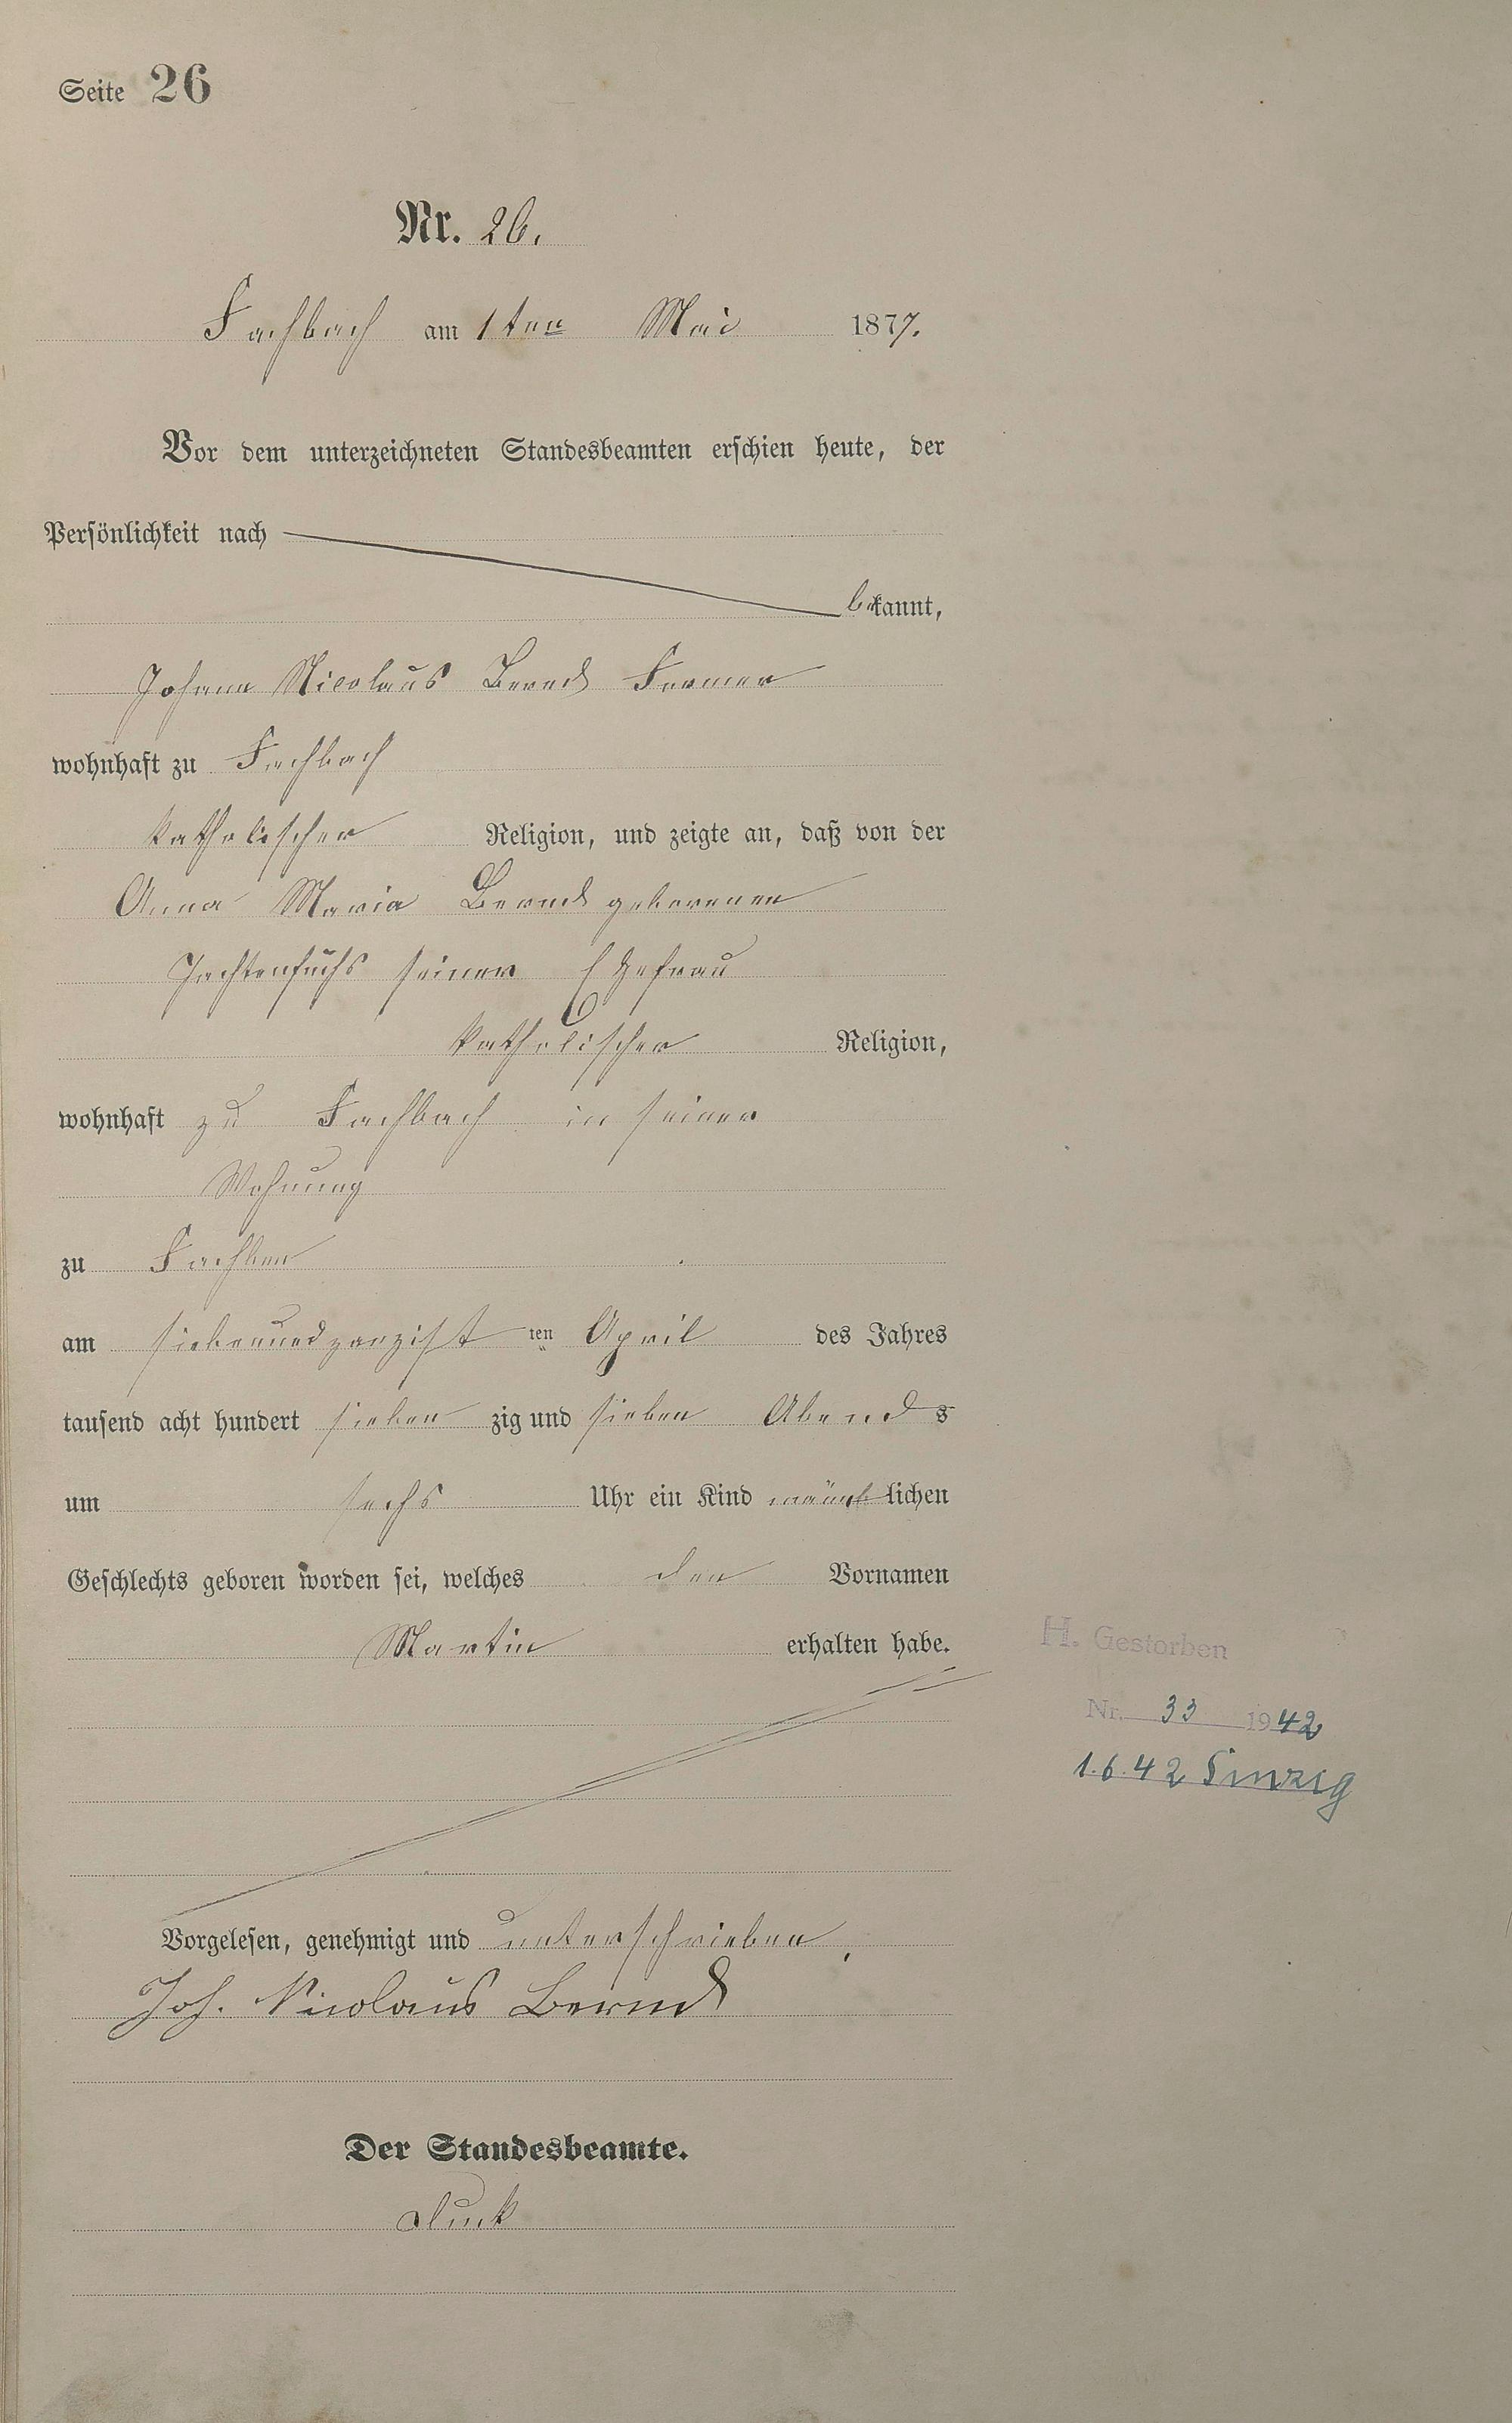 Seite 26
Nr. 26.
Fachbach am 1ten Mai 1877.
Vor dem unterzeichneten Standesbeamten erschien heute, der
Persönlichkeit nach
bekannt,
Johann Nicolaus Bernd Former
wohnhaft zu Fachbach
katholischer Religion, und zeigte an, daß von der
Anna Maria Bernd geborenen
seiner Ehefrau
katholischer Religion,
wohnhaft zu Fachbach in seiner
Wohnung
zu
am siebenundzwanzigsten April des Jahres
tausend acht hundert sieben zig und sieben Abends
um sechs Uhr ein Kind männlichen
Geschlechts geboren worden sei, welches den Vornamen
Martin erhalten habe.
H. Gestorben
Nr. 33 1942
1.6.42 Sinzig
Vorgelesen, genehmigt und unterschrieben,
Joh. Nicolaus Bernd
Der Standesbeamte.